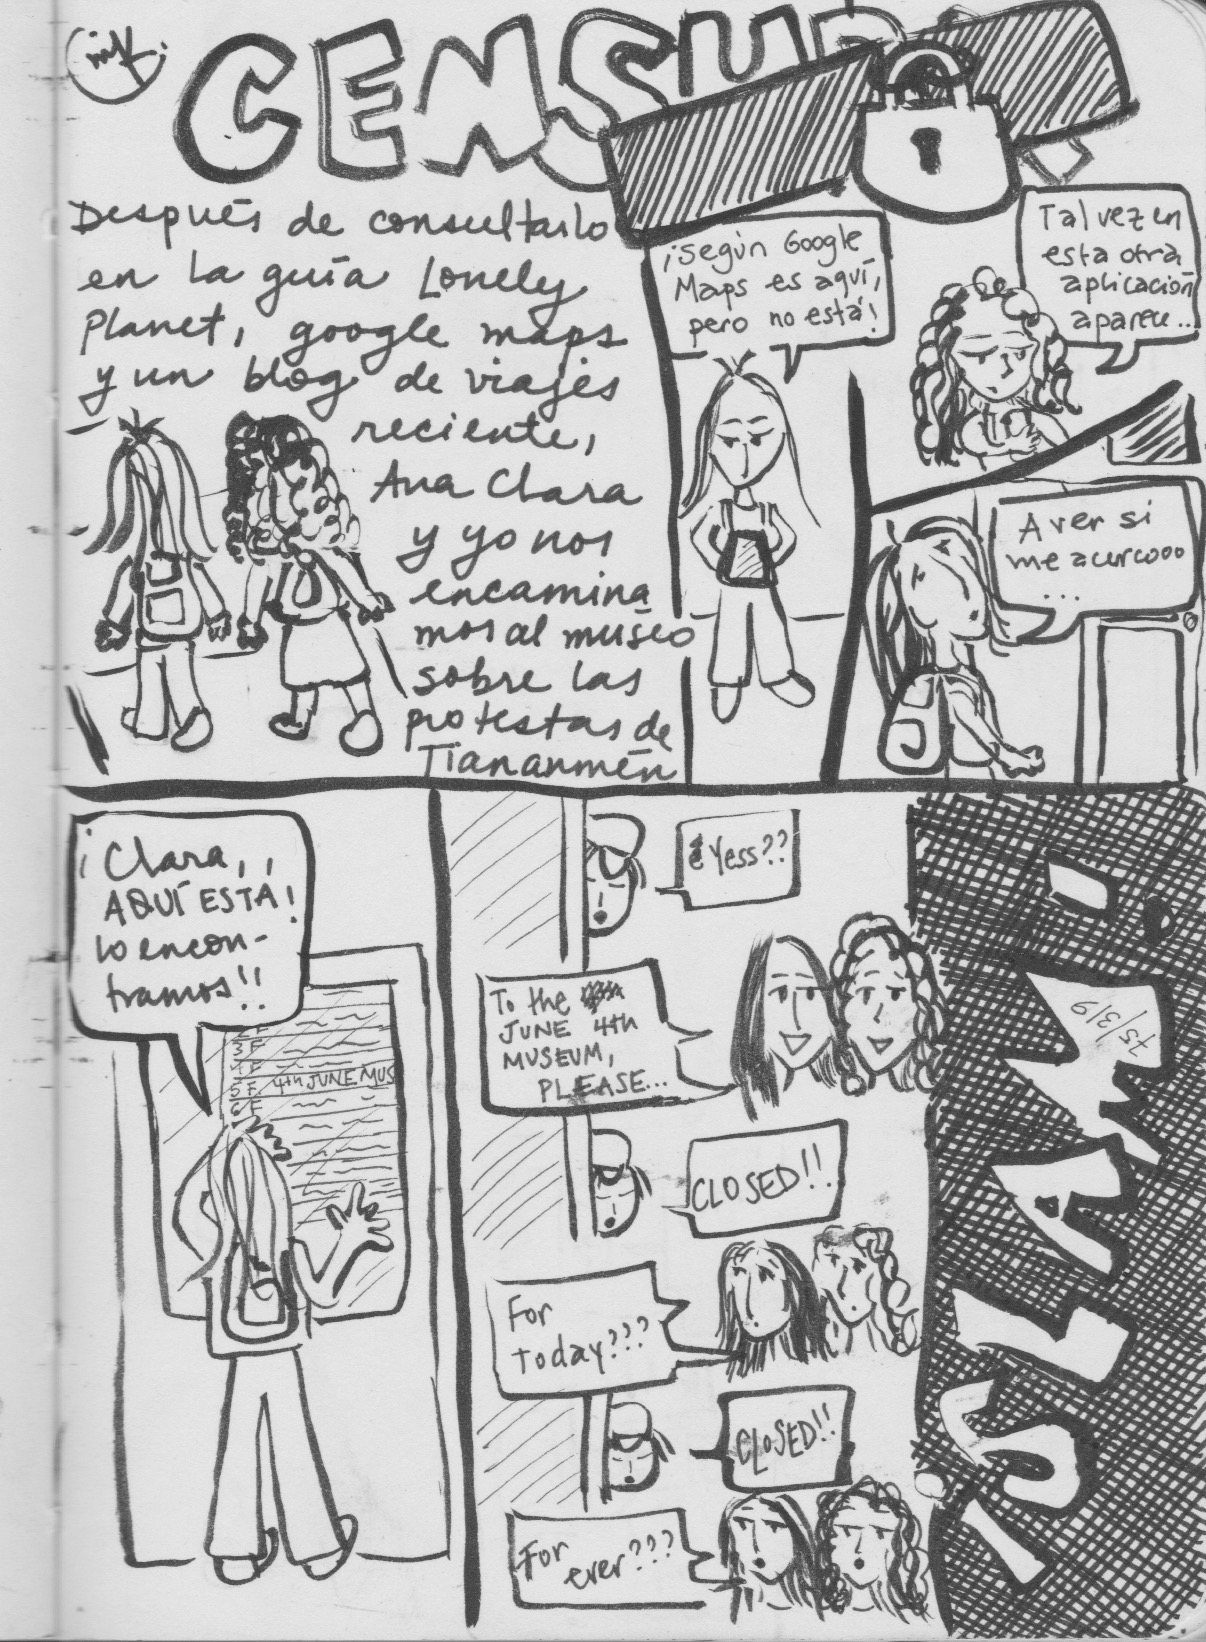 CENSUR
Después de consultarlo
en la guía Lonely
Planet, google maps
y un blog de viajes
reciente,
Ana Clara
y yo nos
encamina
mos al museo
sobre las
protestas de
Tiananmén
¡Según Google
Maps es aquí,
pero no está!
Tal vez en
esta otra
aplicación
aparece...
A ver si
me acercooo
...
¡Clara,
AQUÍ ESTÁ!
lo encon-
tramos!!
3F
5F 4th JUNE MUS
6F
¿Yess??
To the
JUNE 4th
MUSEUM,
PLEASE...
CLOSED!!
For
today???
CLOSED!!
For
ever???
¡SLAM!